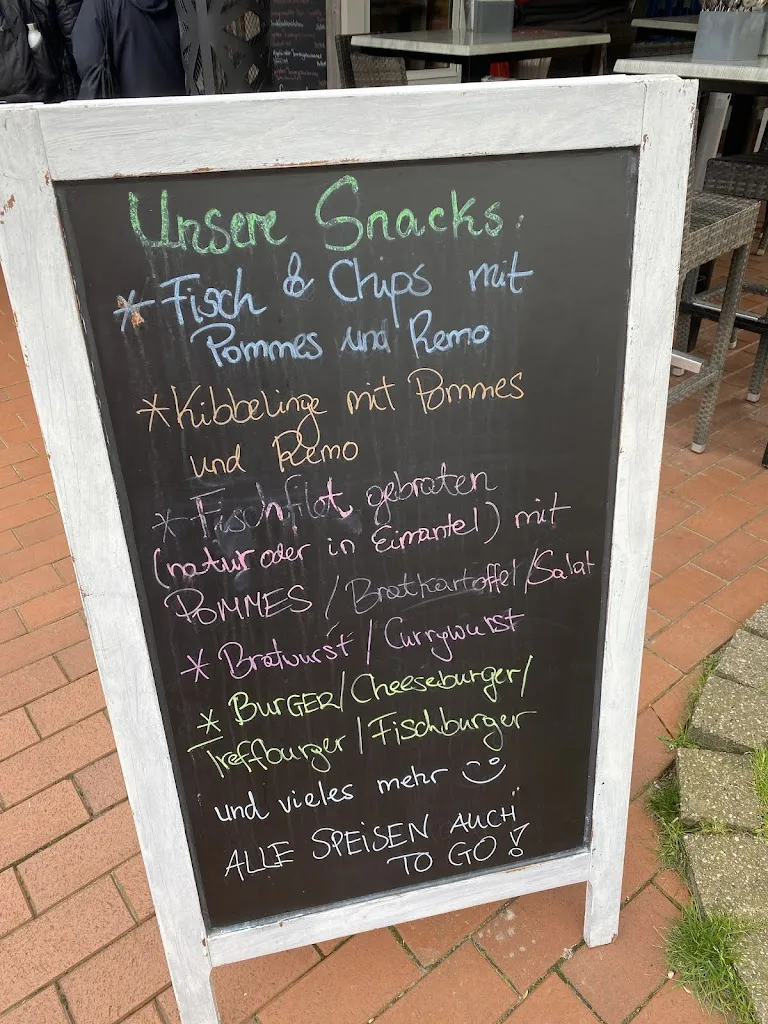 Unsere Snacks:
* Fisch & Chips mit
Pommes und Remo
* Kibbelinge mit Pommes
und Remo
* Fischfilet gebraten
(natur oder in Eimantel) mit
POMMES / Bratkartoffel / Salat
* Bratwurst / Currywurst
* BURGER / Cheeseburger /
Treffburger / Fischburger
und vieles mehr
ALLE SPEISEN AUCH
TO GO!